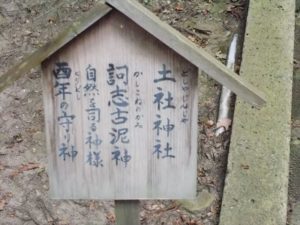 土社神社
どしゃじんじゃ
訶志古泥神
かしこねのかみ
自然を司る神様
酉年の守り神
とりどし